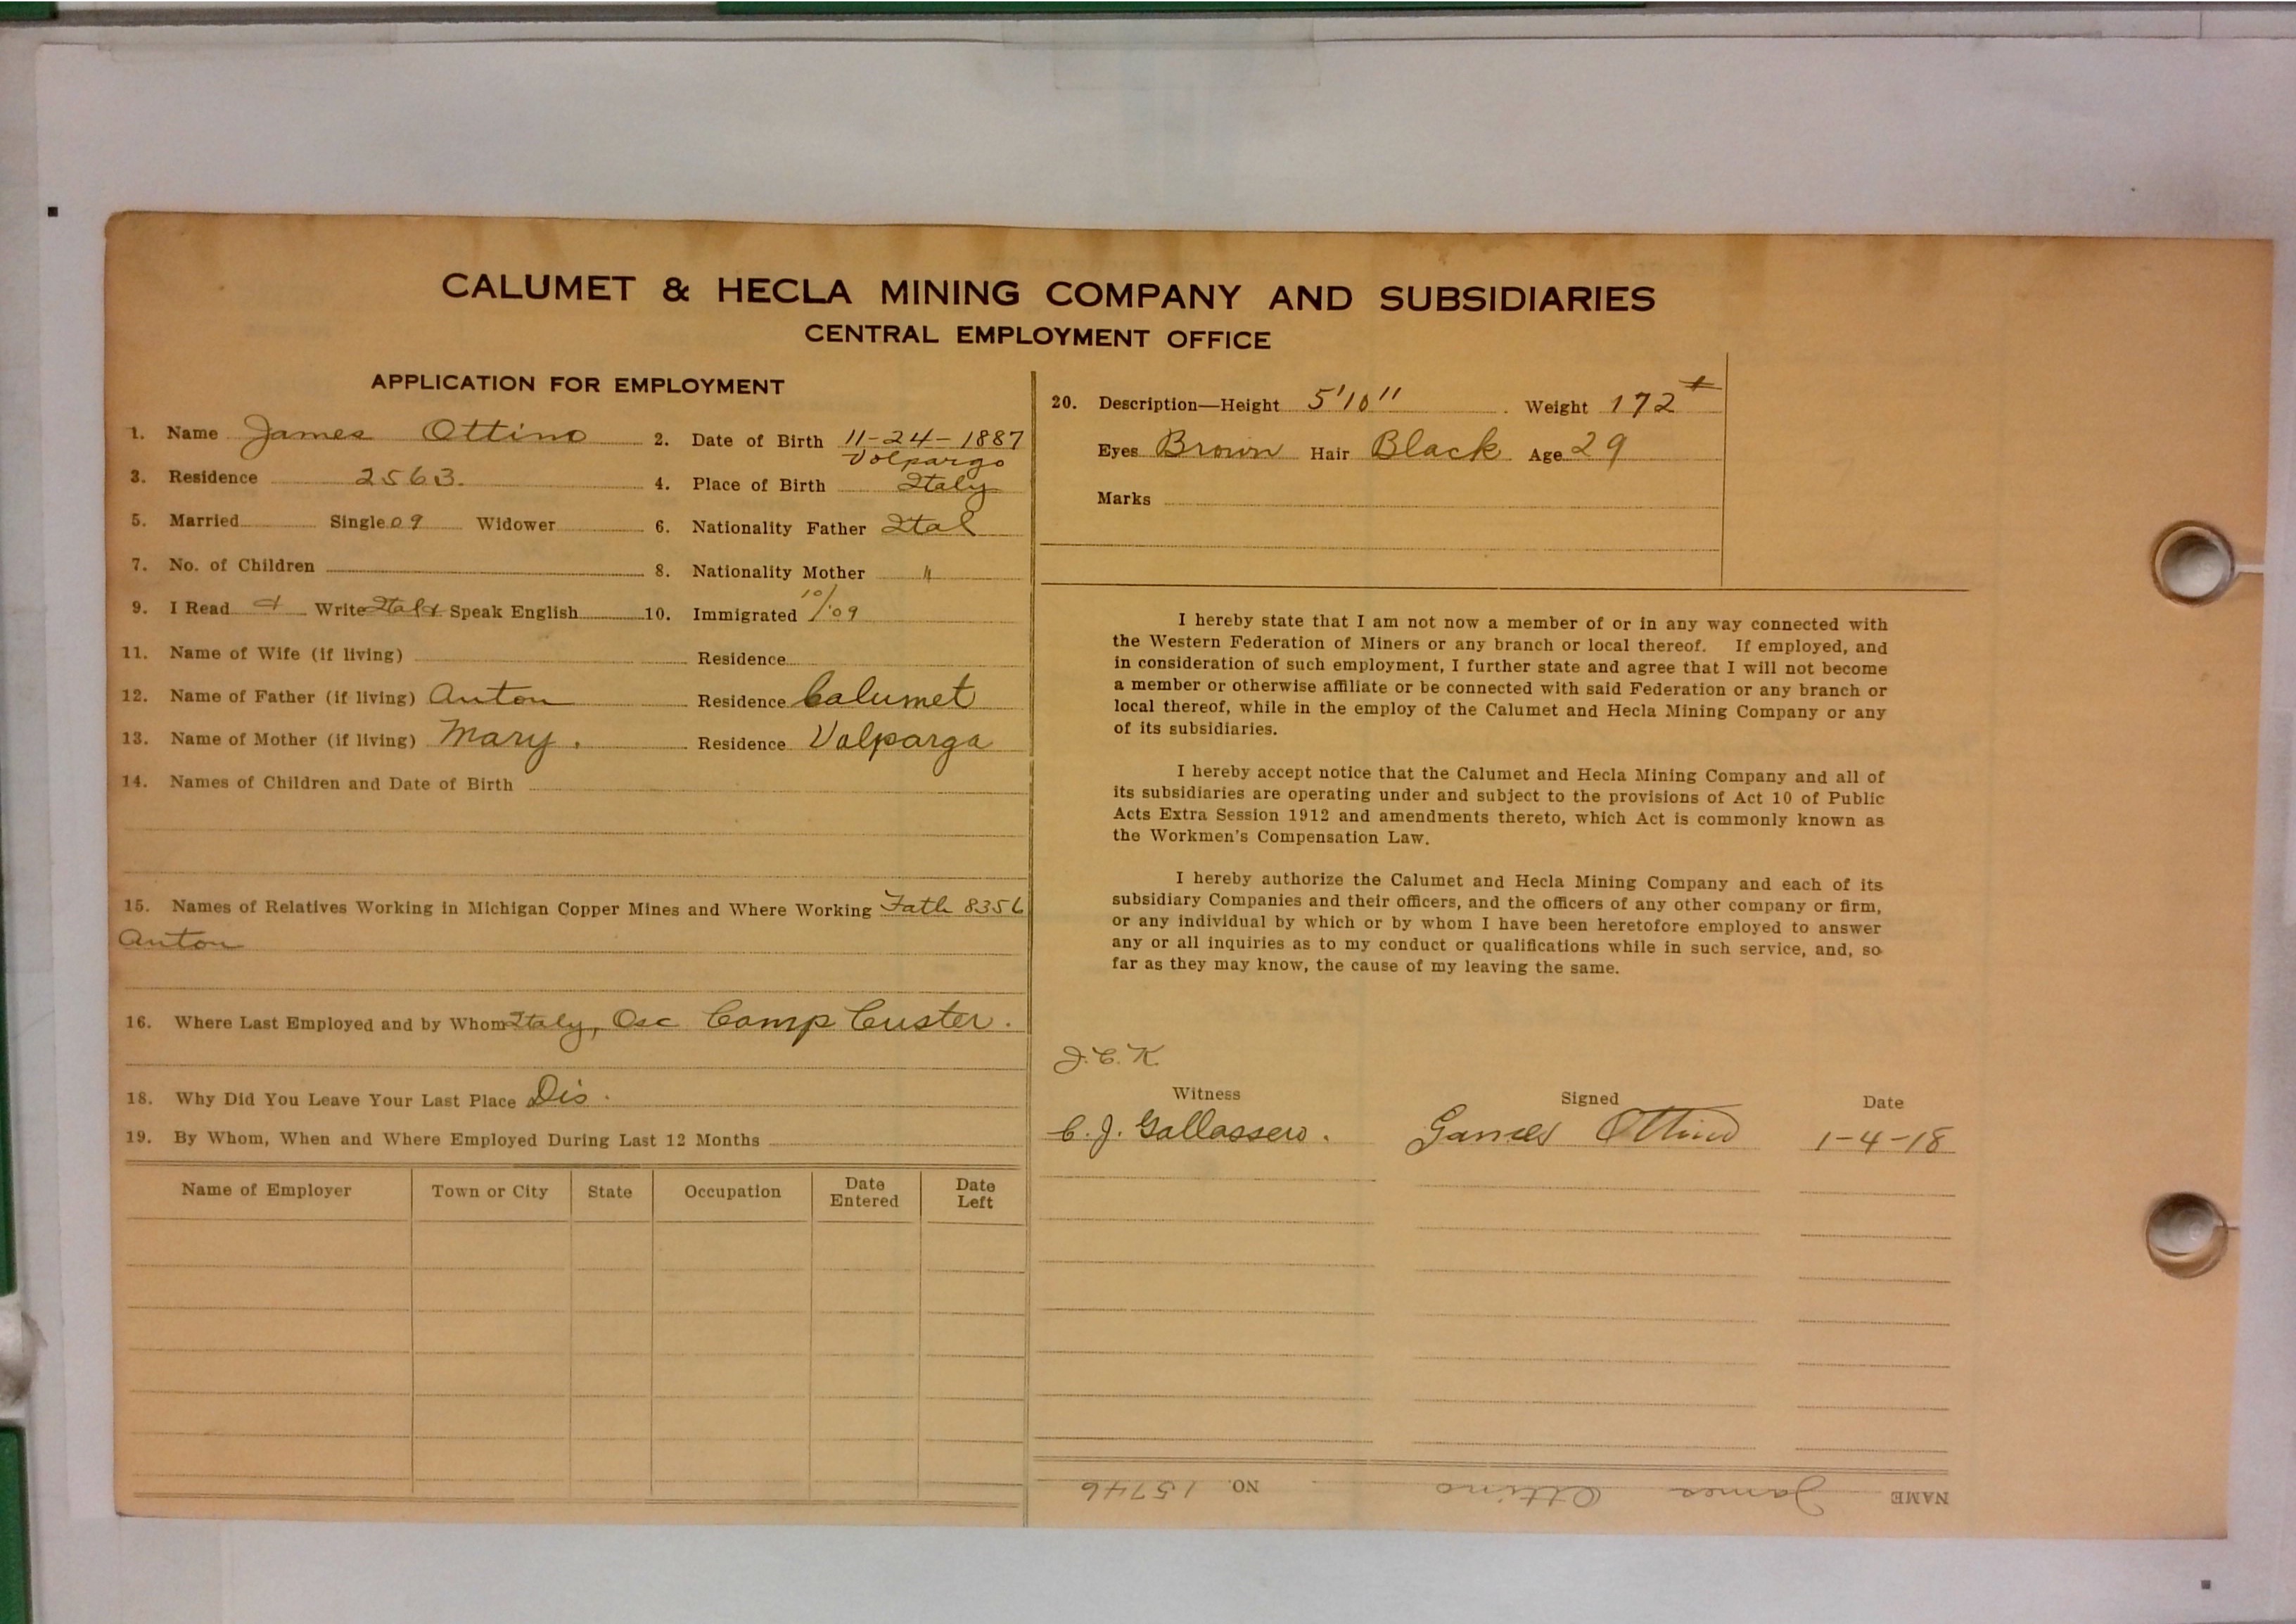 CALUMET & HECLA MINING COMPANY AND SUBSIDIARIES
CENTRAL EMPLOYMENT OFFICE
APPLICATION FOR EMPLOYMENT
1. Name James Ottino 2. Date of Birth 11-24-1887
Volpargo
3. Residence 2563. 4. Place of Birth Italy
5. Married Single 09 Widower 6. Nationality Father Ital
7. No. of Children 8. Nationality Mother "
9. I Read + Write Ital + Speak English 10. Immigrated 10/09
11. Name of Wife (if living) Residence
12. Name of Father (if living) Anton Residence Calumet
13. Name of Mother (if living) Mary. Residence Valparga
14. Names of Children and Date of Birth
15. Names of Relatives Working in Michigan Copper Mines and Where Working Fath 8356
Anton
16. Where Last Employed and by Whom Italy, Osc Camp Custer.
18. Why Did You Leave Your Last Place Dis.
19. By Whom, When and Where Employed During Last 12 Months
Name of Employer Town or City State Occupation Date Entered Date Left
20. Description—Height 5'10" Weight 172
Eyes Brown Hair Black Age 29
Marks
I hereby state that I am not now a member of or in any way connected with
the Western Federation of Miners or any branch or local thereof. If employed, and
in consideration of such employment, I further state and agree that I will not become
a member or otherwise affiliate or be connected with said Federation or any branch or
local thereof, while in the employ of the Calumet and Hecla Mining Company or any
of its subsidiaries.
I hereby accept notice that the Calumet and Hecla Mining Company and all of
its subsidiaries are operating under and subject to the provisions of Act 10 of Public
Acts Extra Session 1912 and amendments thereto, which Act is commonly known as
the Workmen's Compensation Law.
I hereby authorize the Calumet and Hecla Mining Company and each of its
subsidiary Companies and their officers, and the officers of any other company or firm,
or any individual by which or by whom I have been heretofore employed to answer
any or all inquiries as to my conduct or qualifications while in such service, and, so
far as they may know, the cause of my leaving the same.
J.C.K.
Witness Signed Date
C. J. Gallassero. James Ottino 1-4-18
NAME James Ottino NO. 15746